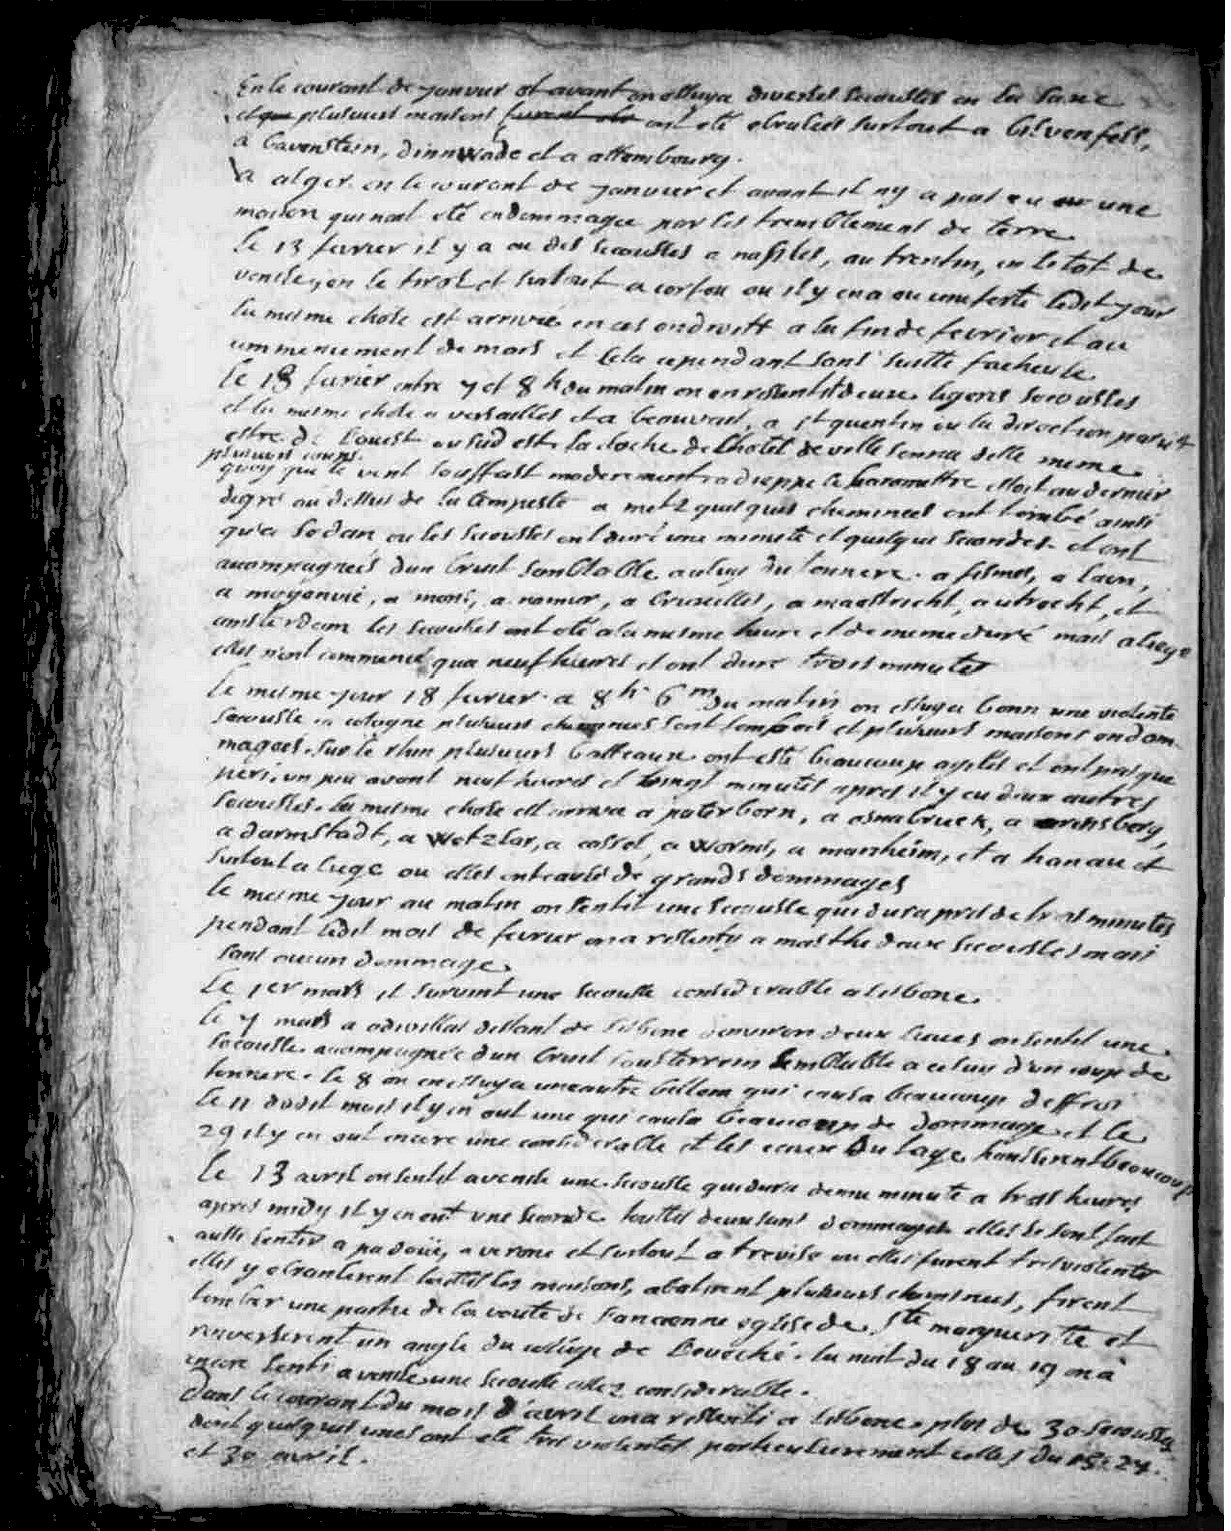 En le courant de janvier et avant on essuya diverses secousses en la saxe
et que plusieurs maisons furent ont eté ebralées surtout a
a Gavenstein, et a altembourg.
a alger en le courant de janvier et avant il ny a pas eu une
maison qui nait eté endommagée par les tremblement de terre
le 13 fevrier il y a eu des secousses a naples, au trentin, en de
venise, en le tirol et surtout a corfou ou il y en a eu une forte ledit jour
la mesme chose est arrivée en ces endroitt a la fin de fevrier et au
commencement de mars et cela cependant sans suitte facheuse
le 18 fevrier entre 7 et 8 h du matin on en ressentit deux legeres secousses
et la mesme chose a versailles et a beauvais, a st quentin ou la direction parut
estre de l'ouest au sud est la cloche de l'hotel de ville sonna delle meme
plusieurs coups.
quoy que le vent soufflast moderement a dieppe le barometre estoit au dernier
degré au dessus de la tempeste a metz quelques cheminées ont tombé ainsi
qu'a sedan ou les secousses ont duré une minute et quelque secondes. et ont
accompagnées dun bruit semblable a celuy du tonnere. a fismes, a laon,
a moyenvic, a mons, a namur, a bruxelles, a maestricht, a utrecht, et
amsterdam les secousses ont eté a la mesme heure et de meme duré mais a liege
elles n'ont commencé qua neuf heures et ont duré trois minutes
le mesme jour 18 fevrier a 8 h 6 m du matin on essuya a bonn une violente
secousse a cologne plusieurs cheminées sont tombées et plusieurs maisons endom-
magées. sur le rhin plusieurs batteaux ont esté beaucoup agités et ont presque
peri. un peu avant neuf heures et vingt minutes apres il y eu deux autres
secousses. la mesme chose est arrivée a paterborn, a osnabruck, a arensberg,
a darmstadt, a wetzlar, a cassel, a worms, a manheim, et a hanau et
surtout a liege ou elles ont causé de grands dommages
le mesme jour au matin on sentit une secousse qui dura pres de trois minutes
pendant ledit mois de fevrier on a ressenty a malthe deux secousses mais
sans aucun dommage.
le 1er mars il survint une secousse considerable a lisbone.
le 7 mars a odivellas distant de lisbone d'environ deux lieues on sentit une
secousse accompagnée dun bruit sousterrein semblable a celuy d'un coup de
tonnere. le 8 on en essuya une autre qui causa beaucoup deffroi
le 11 dudit mois il y en eut une qui causa beaucoup de dommage et le
29 il y en eut encore une considerable et les eaux du tage hausserent beaucoup
le 13 avril on sentit a venise une secousse qui dura demie minute a trois heures
apres midy il y en eut une seconde touttes deux sans dommages elles se sont fait
aussi sentir a padoüe, a verone et surtout a trevise ou elles furent tres violentes
elles y ebranlerent touttes les maisons, abatirent plusieurs cheminées, firent
tomber une partie de la voute de l'ancienne eglise de Ste marguerite et
renverserent un angle du college de l'evesché. la nuit du 18 au 19 on a
encore senti a venise une secousse assez considerable.
Dans le courant du mois d'avril on a ressenti a lisbone plus de 30 secousses
dont quelques unes ont eté tres violentes particulierement celles du 24
et 30 avril.